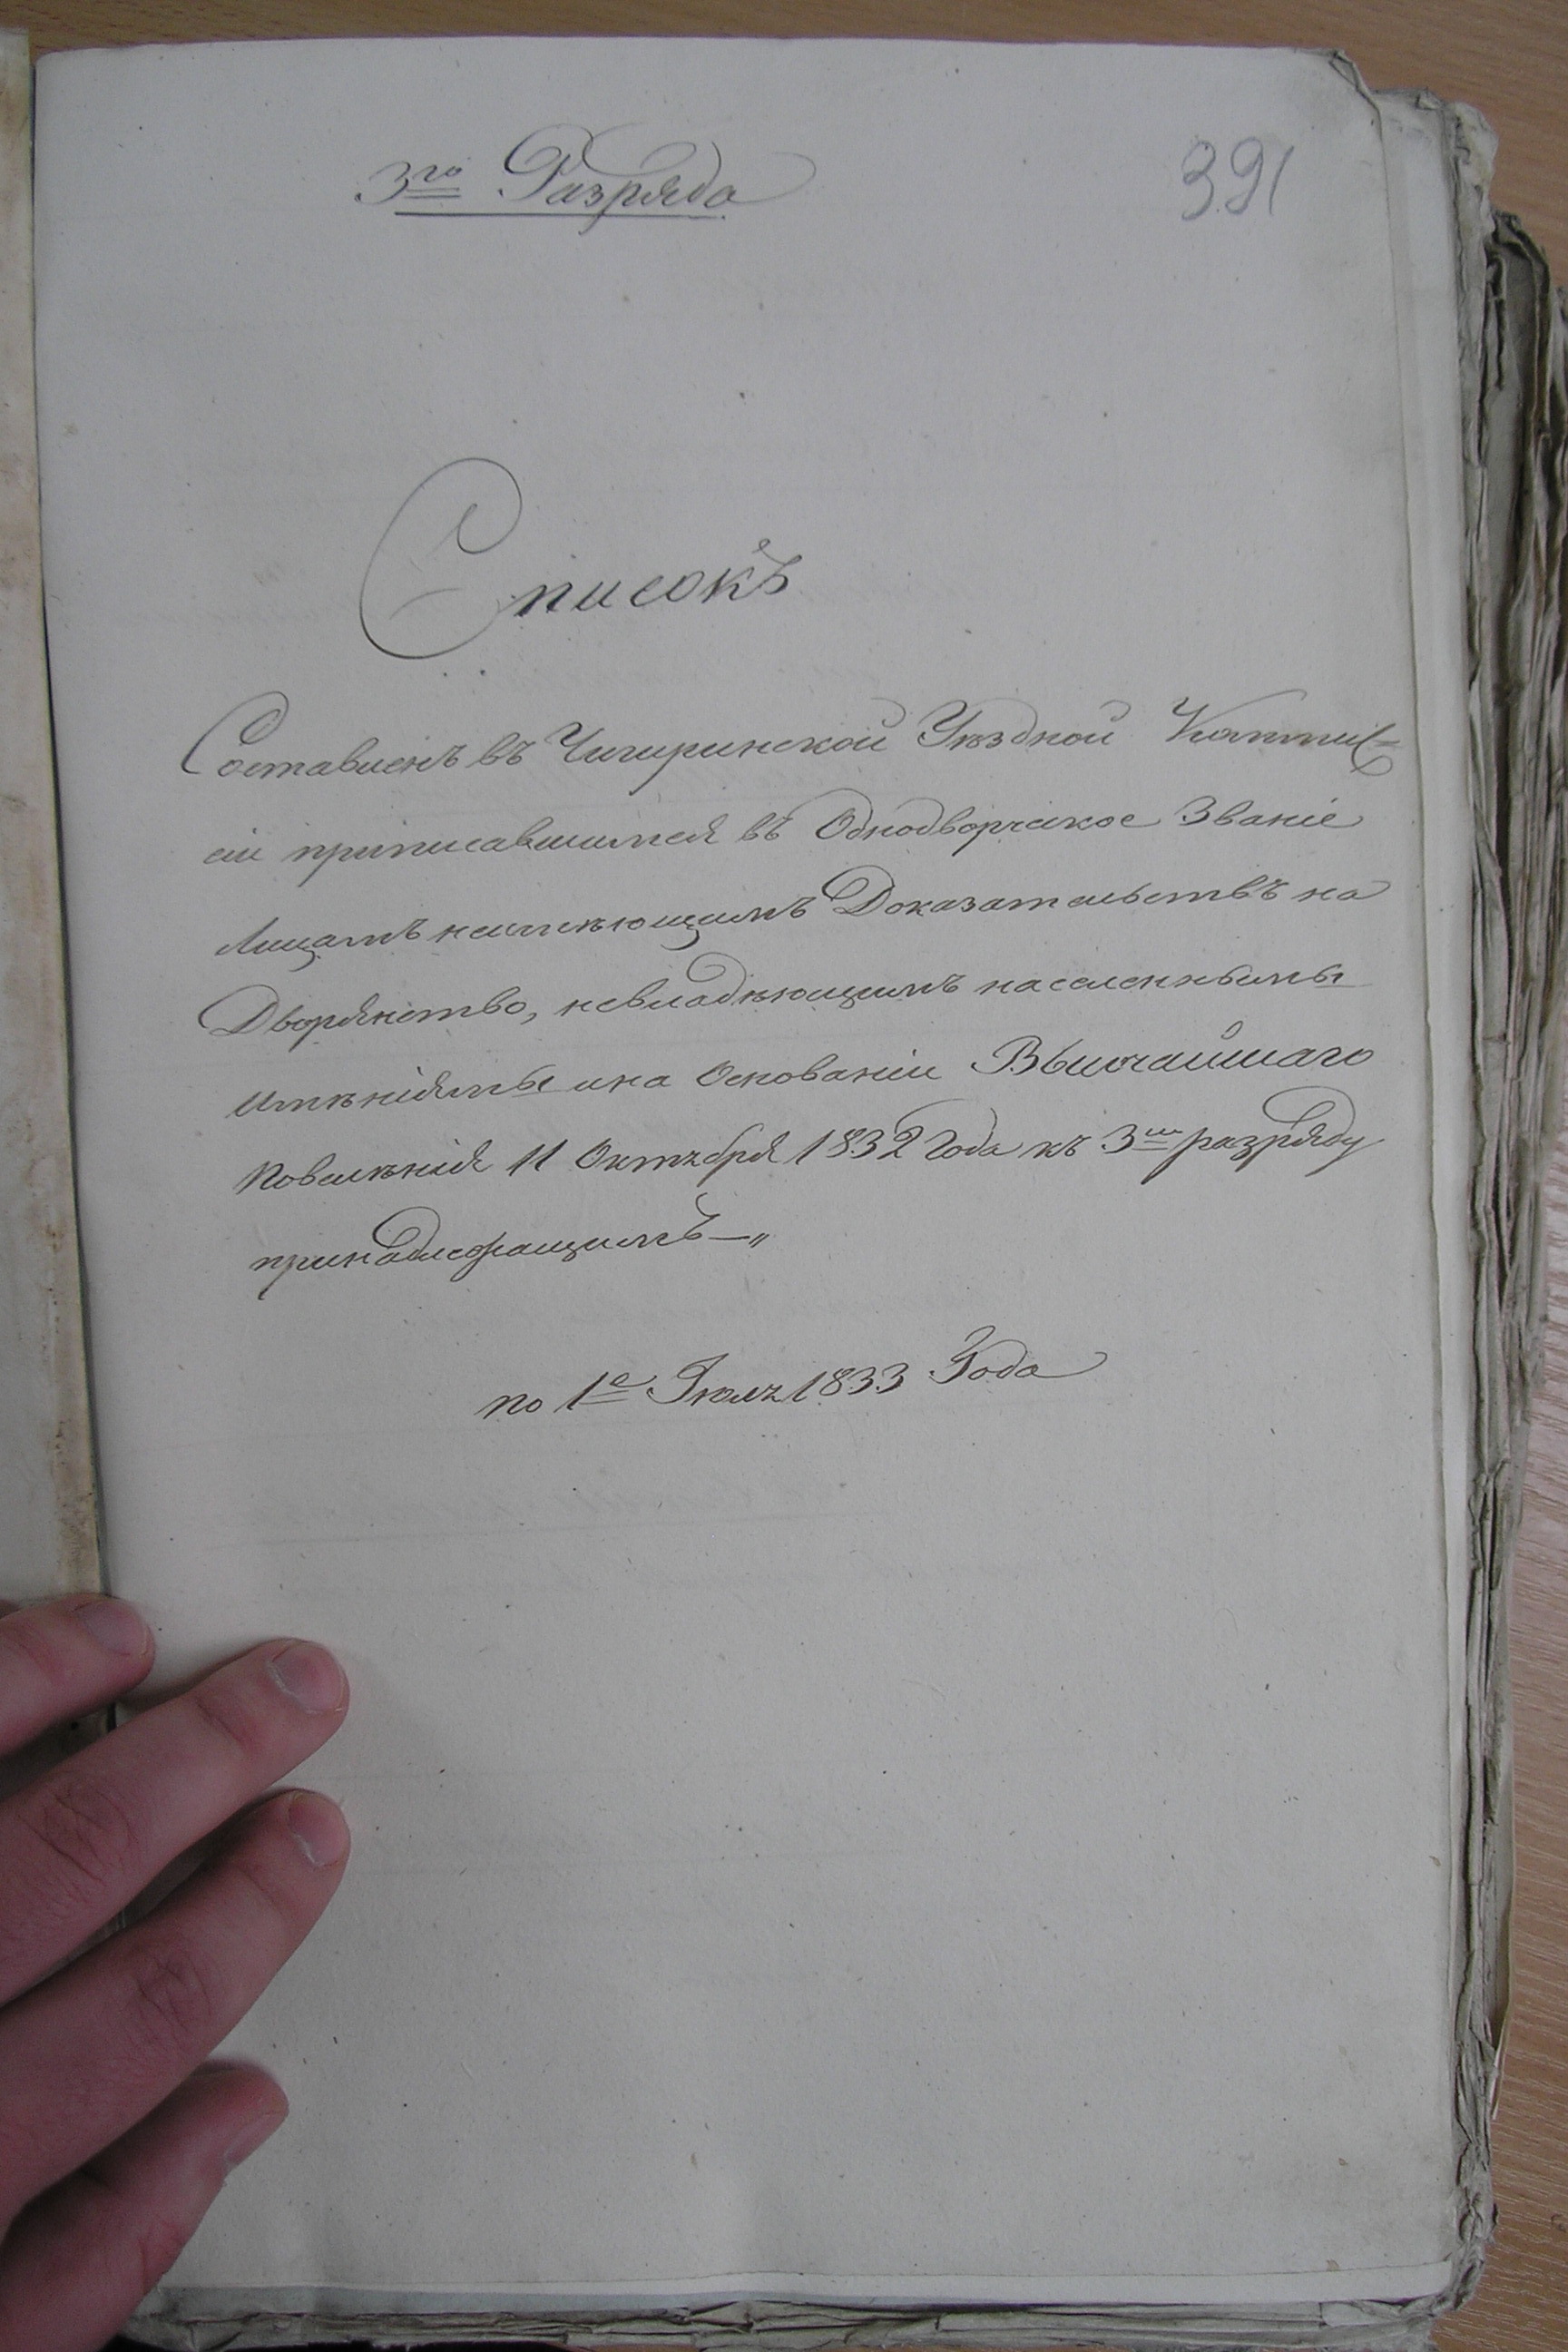 3го Разряда
391
Списокъ
Составленъ въ Чигиринской Уѣздной Коммис=
сіи приписавшимся въ Однодворческое Званіе
Лицамъ неимѣющимъ Доказательствъ на
Дворянство, невладѣющимъ населенными
имѣніями и на Основаніи Высочайшаго
Повелѣнія 11 Октября 1832 Года къ 3му разряду
принадлежащимъ —„
по 1е Іюля 1833 Года